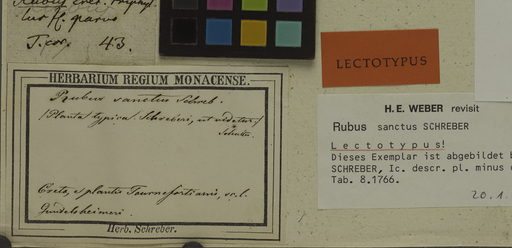 Rubus
tus fl. parvo
T. cor. 43.
LECTOTYPUS
HERBARIUM REGIUM MONACENSE.
Rubus sanctus Schreb.
(Planta typica Schreberi, ut videtur)
Creta, e plantis Tournefortianis,
Gundelsheimeri.
Herb. Schreber.
H. E. WEBER revisit
Rubus sanctus SCHREBER
Lectotypus!
Dieses Exemplar ist abgebildet
SCHREBER, Ic. descr. pl. minus
Tab. 8.1766.
20.1.